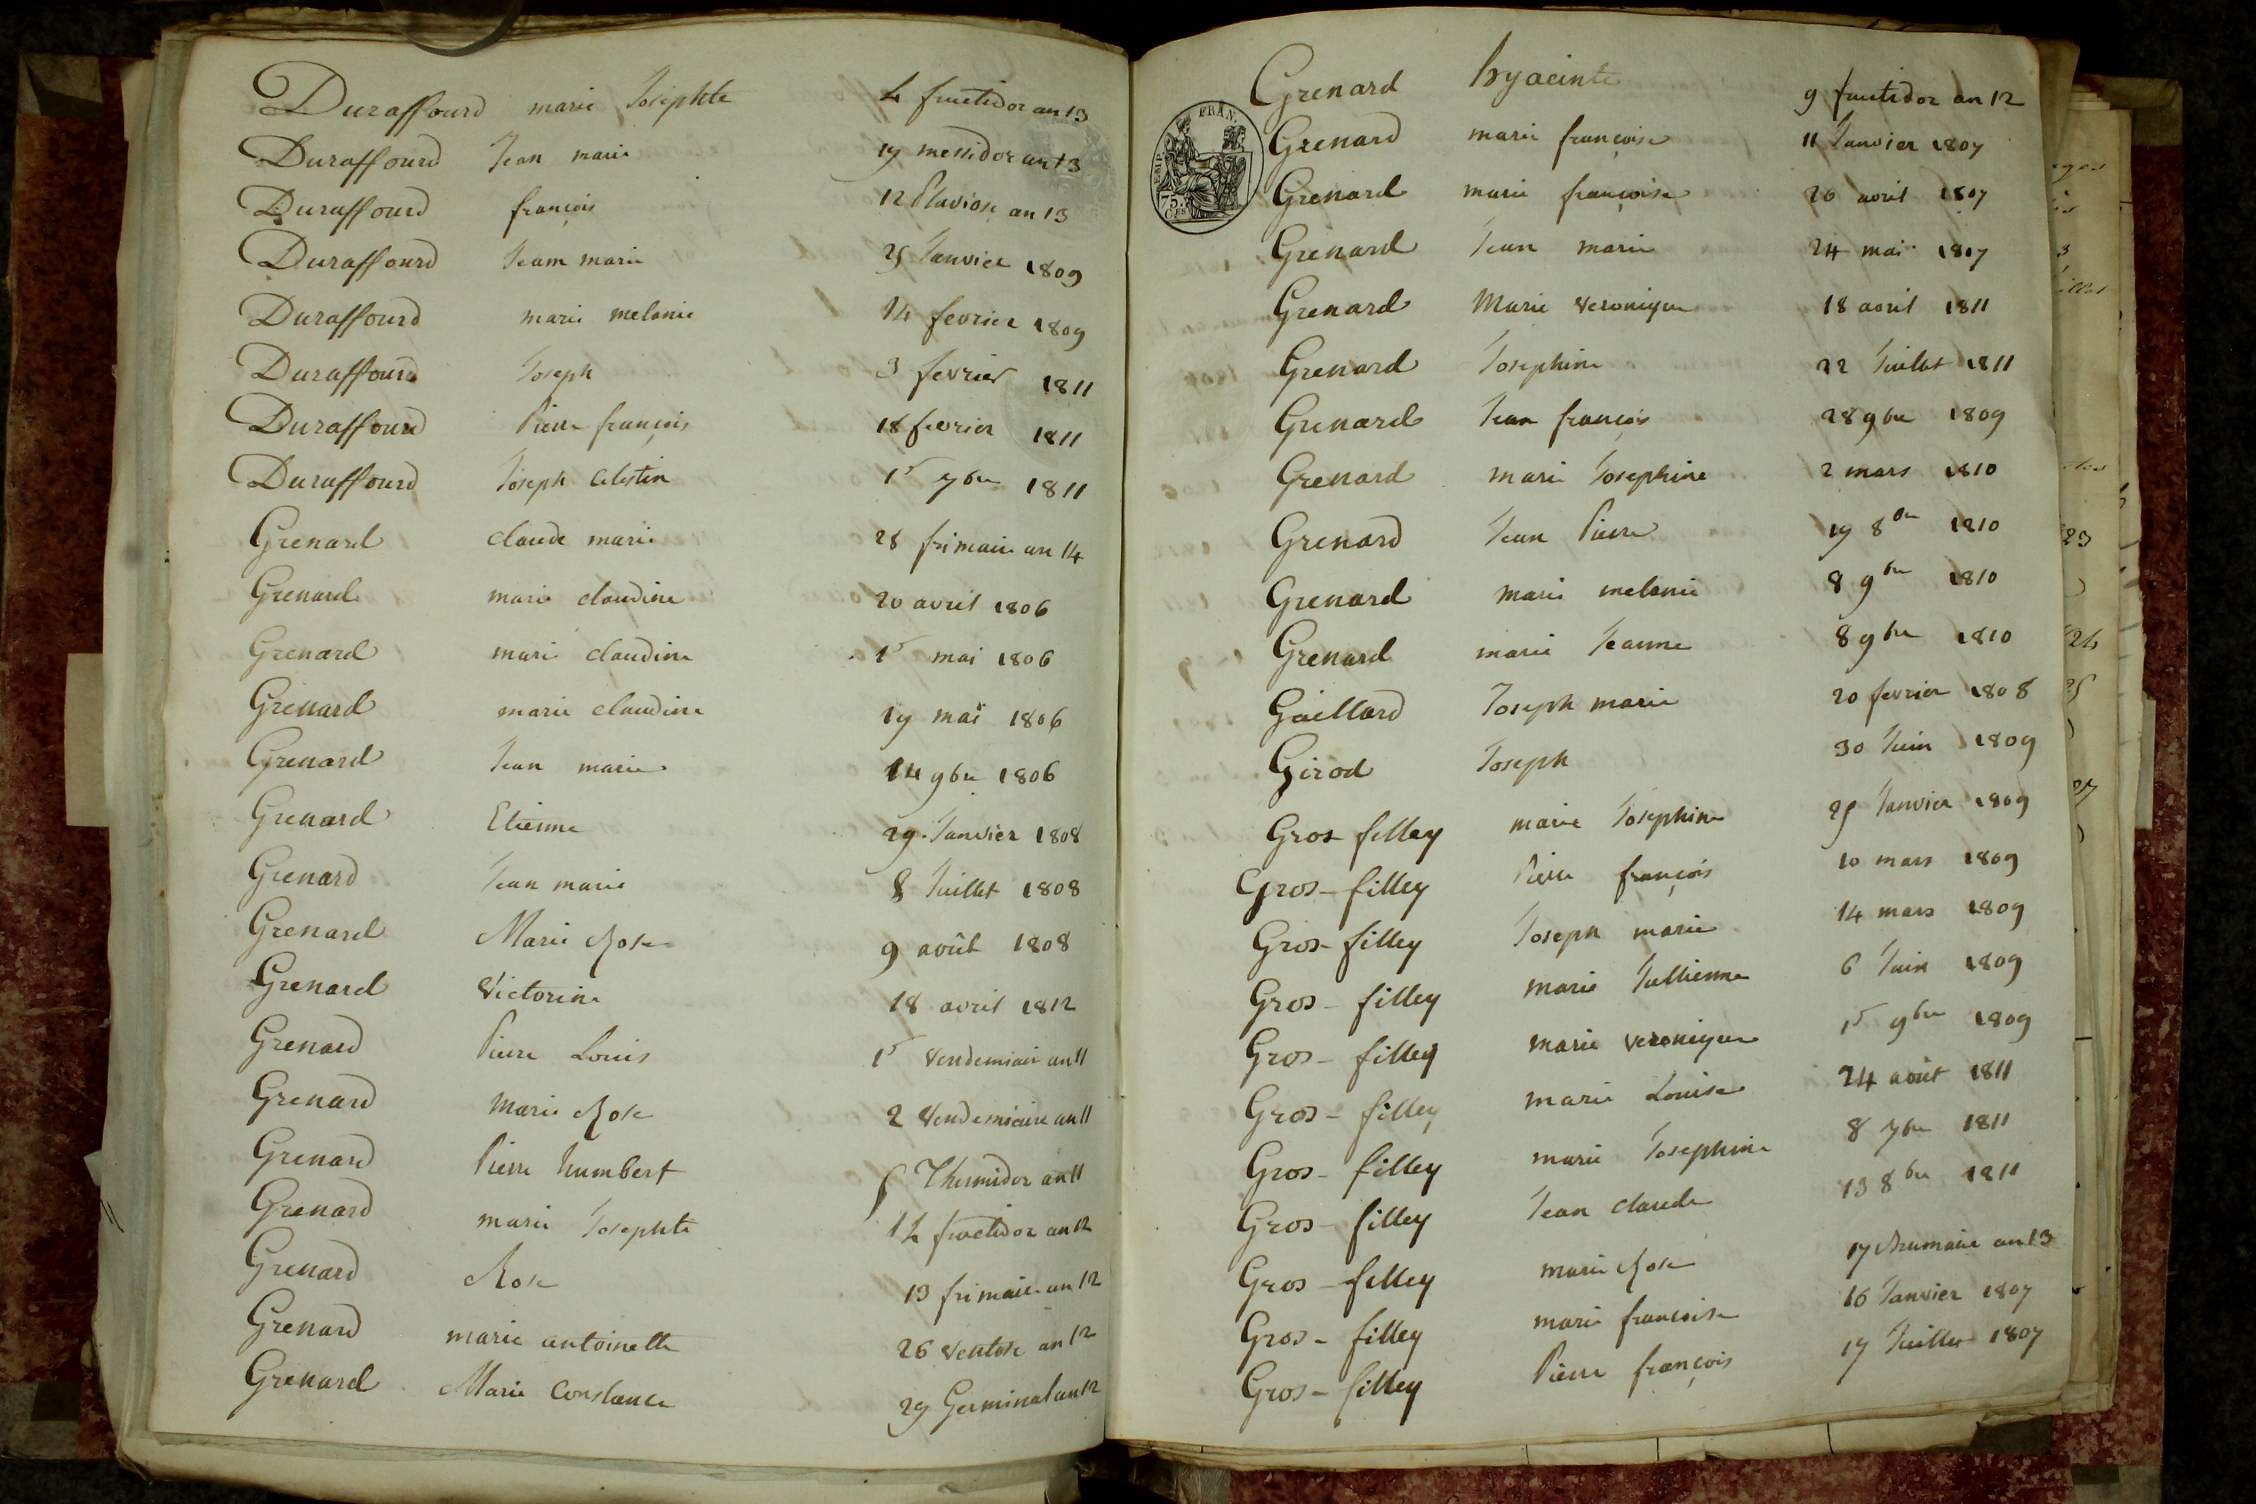 Duraffourd marie Josephte 4 fructidor an 13
Duraffourd Jean marie 19 messidor an 13
Duraffourd françois 12 Pluviose an 13
Duraffourd Jeam marie 25 Janvier 1809
Duraffourd marie melanie 14 fevrier 1809
Duraffourd Joseph 3 fevrier 1811
Duraffourd Pierre françois 18 fevrier 1811
Duraffourd Joseph Celestin 1r 7bre 1811
Grenard claude marie 28 frimaire an 14
Grenard marie claudine 20 avril 1806
Grenard marie claudine 1r mai 1806
Grenard marie claudine 19 mai 1806
Grenard Jean marie 14 9bre 1806
Grenard Etienne 29 Janvier 1808
Grenard Jean marie 8 Juillet 1808
Grenard Marie Rose 9 août 1808
Grenard Victorine 18 avril 1812
Grenard Pierre Louis 1r Vendemiaire an 11
Grenard Marie Rose 2 Vendemiaire an 11
Grenard Pierre humbert 5 Thermidor an 11
Grenard marie Josephte 14 fructidor an 12
Grenard Rose 13 frimaire an 12
Grenard marie antoinette 26 Ventose an 12
Grenard Marie Constance 29 Germinal an 12
EMP. FRAN.
75. CES
Grenard hyacinte 9 fructidor an 12
Grenard marie françoise 11 Janvier 1807
Grenard marie françoise 26 avril 1807
Grenard Jean marie 24 mai 1807
Grenard Marie Veronique 18 avril 1811
Grenard Josephine 22 Juillet 1811
Grenard Jean françois 28 9bre 1809
Grenard marie Josephine 2 mars 1810
Grenard Jean Pierre 19 8bre 1810
Grenard marie melanie 8 9bre 1810
Grenard marie Jeanne 8 9bre 1810
Gaillard Joseph marie 20 fevrier 1808
Girod Joseph 30 Juin 1809
Gros filley marie Josephine 25 Janvier 1809
Gros-filley Pierre françois 10 mars 1809
Gros-filley Joseph marie 14 mars 1809
Gros-filley marie Jullienne 6 Juin 1809
Gros-filley marie veronique 1r 9bre 1809
Gros-filley marie Louise 24 août 1811
Gros-filley marie Josephine 8 7bre 1811
Gros-filley Jean claude 13 8bre 1811
Gros-filley marie Rose 17 Brumaire an 13
Gros-filley marie francoise 16 Janvier 1807
Gros-filley Pierre françois 17 Juillet 1807